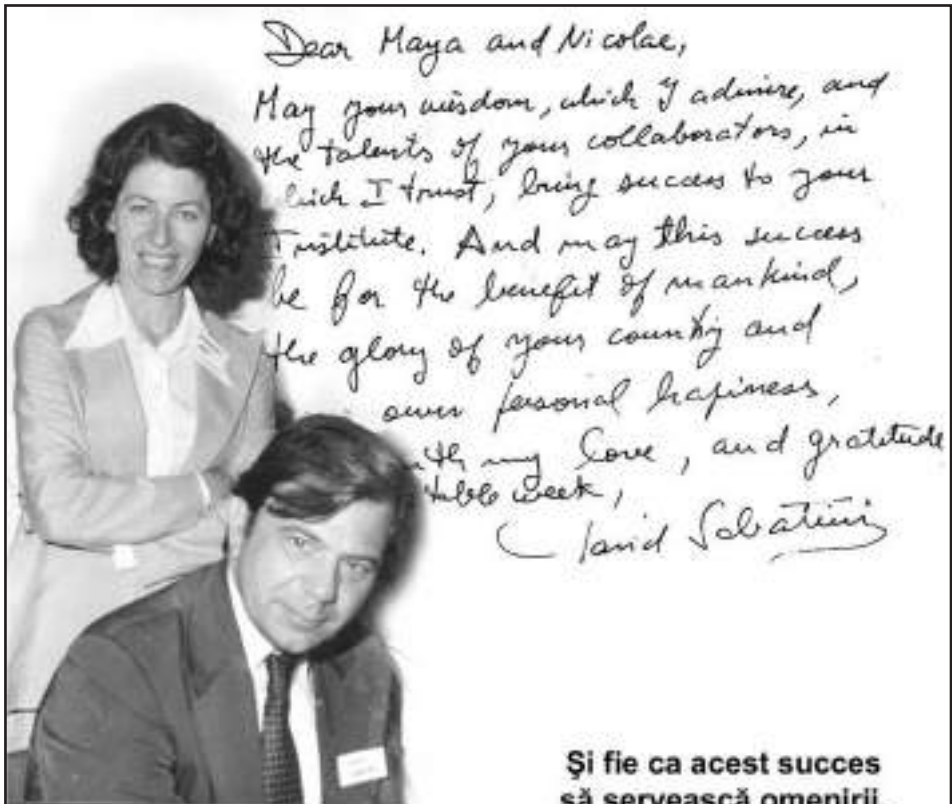 Dear Maya and Nicolae,
May your wisdom, which I admire, and
the talents of your collaborators, in
which I trust, bring success to your
Institute. And may this success
be for the benefit of mankind,
the glory of your country and
own personal hapiness,
my love, and gratitude
week,
David Sabatini
Şi fie ca acest succes
să servească omenirii